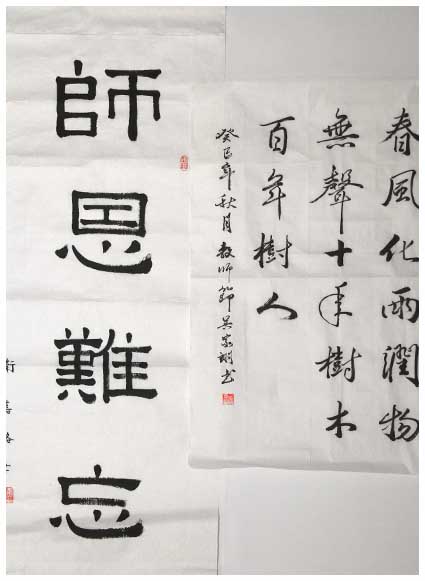 春風化雨潤物
無聲十年樹木
百年樹人
癸巳年秋月教師節吳书
師恩難忘